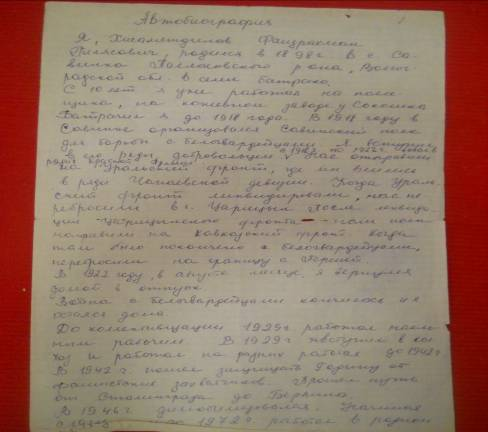 Автобиография
Я, Хисаметдинов Фахрислам
родился в 1898г. В с. Са-
винка Палласовского р-она, Волго-
градской обл. в семье батрака.
С 10 лет я уже работал на поме-
щика, на кожевном заводе у
Батрачил я до 1918 года. В 1918 году в
Савинке организовался Савинский полк
для борьбы с белогвардейцами. Я вступил
в его ряды добровольцем. Нас отправили
ряды красной Армии
на Уральский фронт, где мы влились
в ряды Чапаевской дивизии. Когда Ураль-
ский фронт ликвидировали, нас пе-
ребросили в г. Царицын. После ликвида-
ции Царицынского фронта нас
направили на Кавказский фронт. Когда
там было покончено с белогвардейцами,
перебросили на границу с
В 1922 году, в августе месяце я вернулся
домой в отпуск.
Война с белогвардейцами кончилась и я
остался дома.
До коллективизации 1929г. работал наем-
ным рабочим. В 1929г. вступил в кол-
хоз и работал на разных работах до 1942г
В 1942г. пошел защищать Родину от
фашистских захватчиков. Прошел путь
от Сталинграда до Берлина.
В 1946г. демобилизовался. Начиная
по 1972г. работал в